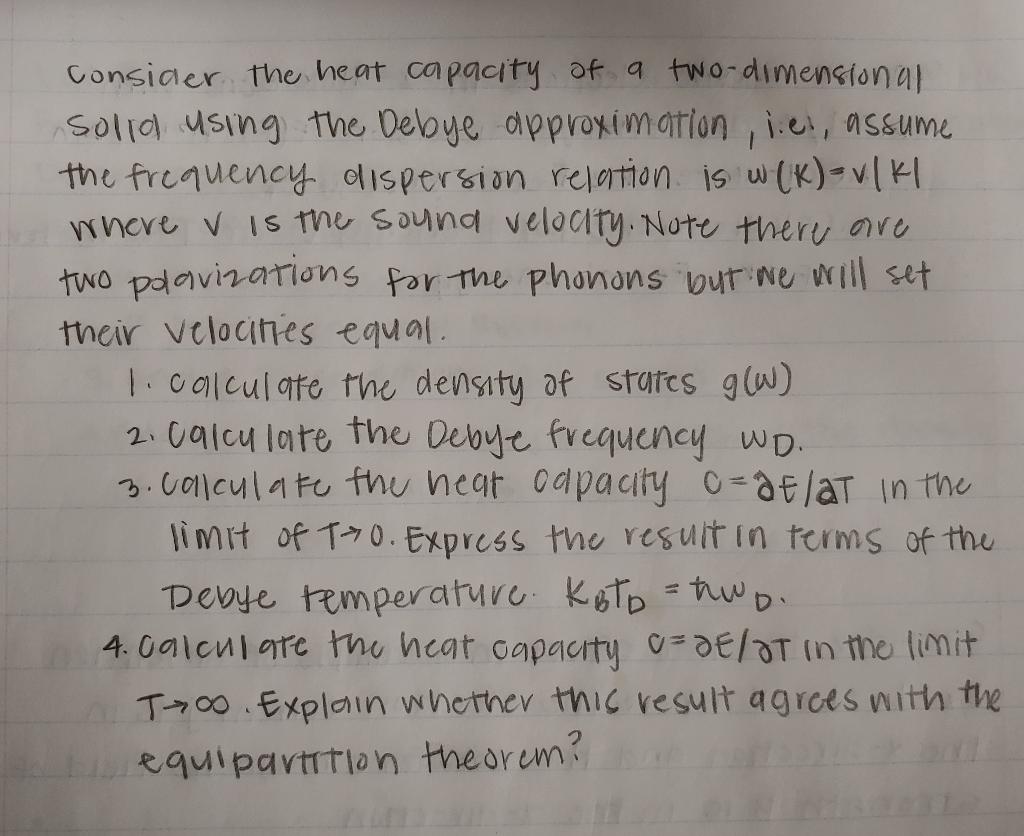 Consider the heat capacity of a two-dimensional
solid using the Debye approximation, i.e., assume
the frequency dispersion relation is w(k)=v|k|
where v is the sound velocity. Note there are
two polarizations for the phonons but we will set
their velocities equal.
1. Calculate the density of states g(w)
2. Calculate the Debye frequency wD.
3. Calculate the heat capacity C=∂E/∂T in the
limit of T→0. Express the result in terms of the
Debye temperature. KBTD = ħwD.
4. Calculate the heat capacity C=∂E/∂T in the limit
T→∞. Explain whether this result agrees with the
equipartition theorem?